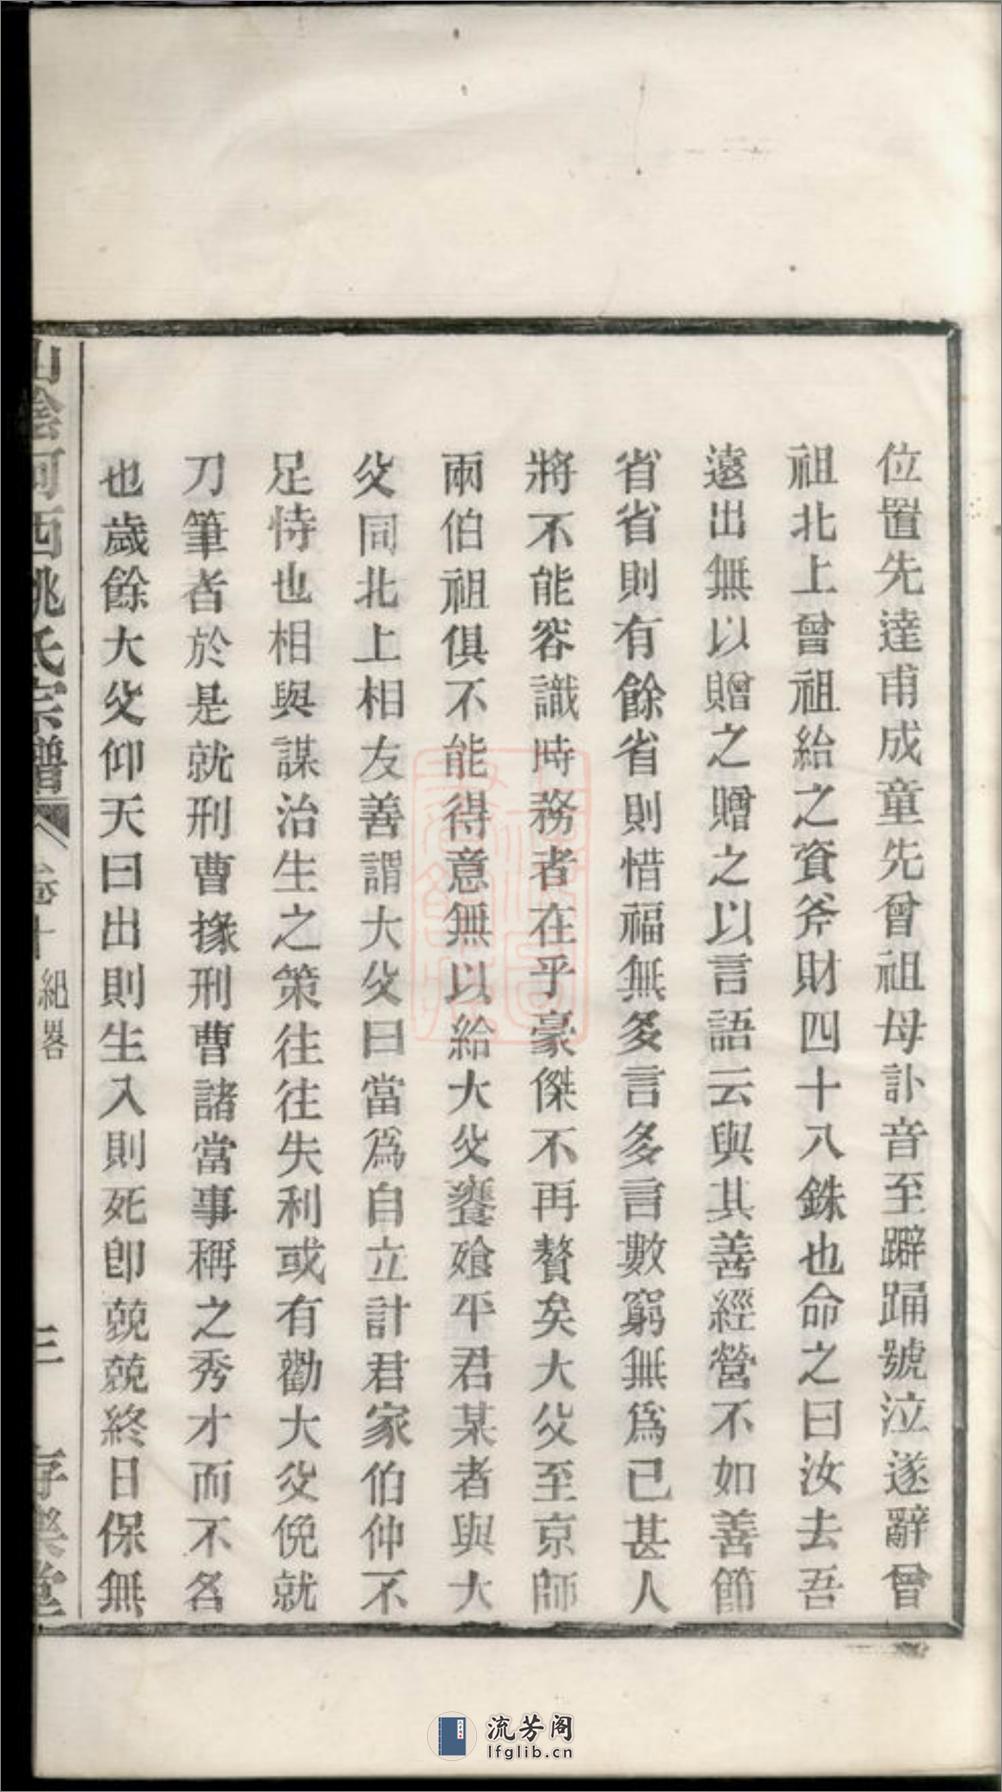 位置先達甫成童先曾祖母訃音至躃踊號泣遂辭曾
祖北上曾祖給之資斧財四十八銖也命之曰汝去吾
遠出無以贈之贈之以言語云與其善經營不如善節
省省則有餘省則惜福無多言多言數窮無爲已甚人
將不能容識時務者在乎豪傑不再贅矣大父至京師
兩伯祖俱不能得意無以給大父饔飧平君某者與大
父同北上相友善謂大父曰當爲自立計君家伯仲不
足恃也相與謀治生之策往往失利或有勸大父俛就
刀筆者於是就刑曹掾刑曹諸當事稱之秀才而不名
也歲餘大父仰天曰出則生入則死卽兢兢終日保無
山陰河西姚氏宗譜 卷十 紀畧 三 存美堂
流芳阁
lfglib.cn